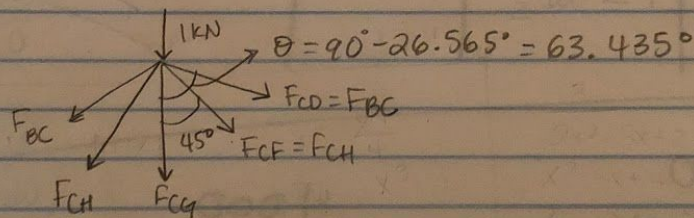 1kN
θ = 90° - 26.565° = 63.435°
F_CD = F_BC
F_BC
45°
F_CF = F_CH
F_CH
F_CG